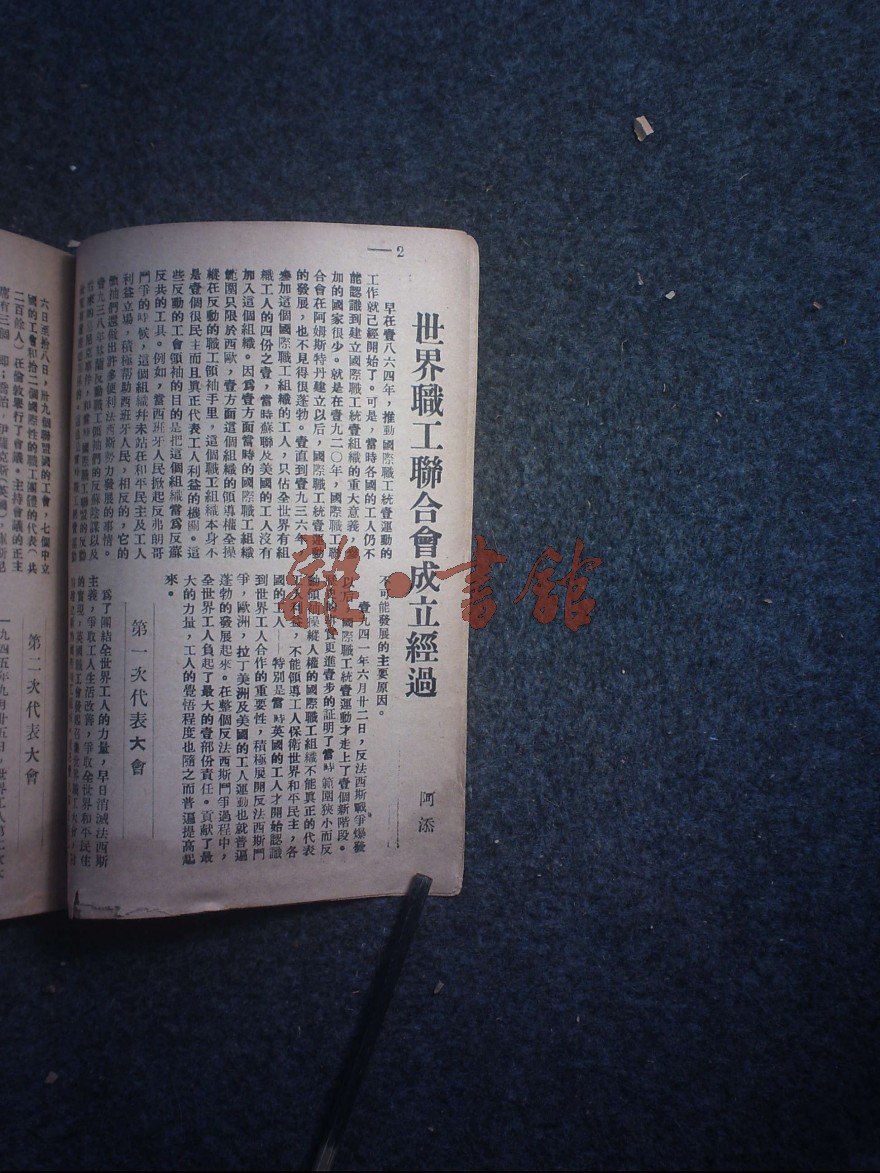 2
世界職工聯合會成立經過
阿添
早在壹八六四年，推動國際職工統壹運動的
工作就已經開始了。可是，當時各國的工人仍不
能認識到建立國際職工統壹組織的重大意義，參
加的國家很少。就是在壹九二〇年，國際職工聯
合會在阿姆斯特丹建立以后，國際職工統壹運動
的發展，也不見得很蓬勃。壹直到壹九三六年，
參加這個國際職工組織的工人，只佔全世界有組
織工人的四份之壹，當時蘇聯及美國的工人沒有
加入這個組織。因爲壹方面當時的國際職工組織
範圍只限於西歐，壹方面這個組織的領導權全操
縱在反動的職工領袖手里，這個職工組織本身不
是壹個很民主而且眞正代表工人利益的機關。這
些反動的工會領袖的目的是把這個組織當爲反蘇
反共的工具。例如，當西班牙人民掀起反弗朗哥
鬥爭的時候，這個組織幷未站在和平民主及工人
利益立場，積極帮助西班牙人民，相反的，它的
領袖們還做出許多便利法西斯勢力發展的事情。
壹九三八年
不可能發展的主要原因。
壹九四一年六月廿二日，反法西斯戰爭爆發
以后，國際職工統壹運動才走上了壹個新階段。
更進壹步的証明了當時範圍狹小而反
動領袖操縱人權的國際職工組織不能眞正的代表
工人利益，不能領導工人保衛世界和平民主，各
國的工人——特别是當時英國的工人才開始認識
到世界工人合作的重要性，積極展開反法西斯鬥
爭，歐洲，拉丁美洲及美國的工人運動也就普遍
蓬勃的發展起來。在整個反法西斯鬥爭過程中，
全世界工人負起了最大的壹部份責任。貢献了最
大的力量，工人的覺悟程度也隨之而普遍提高起
來。
第一次代表大會
爲了團結全世界工人的力量，早日消滅法西斯
主義，爭取工人生活改善，爭取全世界和平民主
的實現，英國職工會
六日至拾八日，卅九個聯盟國的工會，七個中立
國的工會和拾二個國際性的職工團體的代表（共
二百餘人）在倫敦舉行了會議。主持會議的正主
席有三個
第二次代表大會
一九四五年九月廿五日，世界工人第二次大
雜·書館